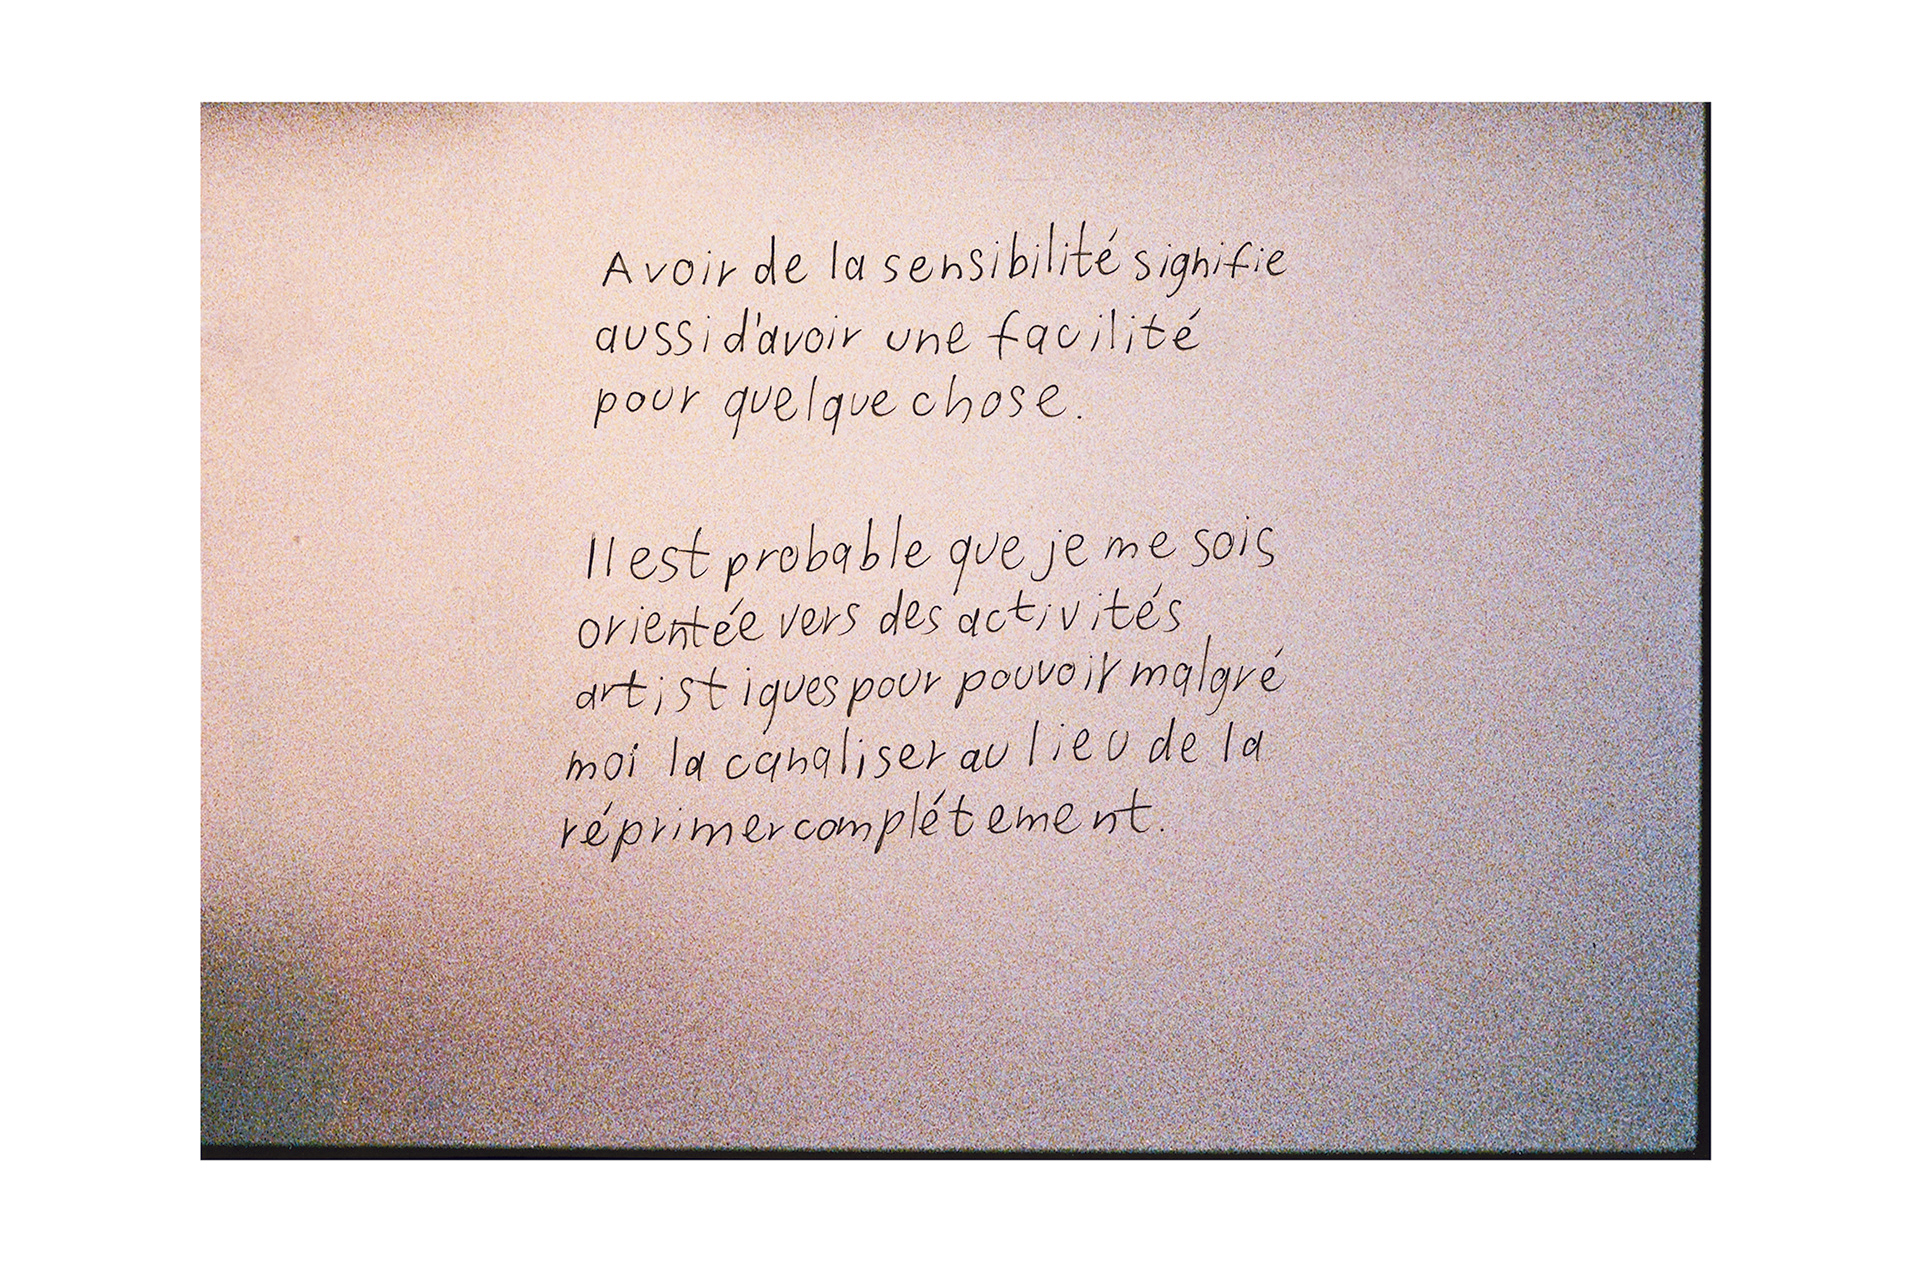 Avoir de la sensibilité signifie
aussi d'avoir une facilité
pour quelque chose.
Il est probable que je me sois
orientée vers des activités
artistiques pour pouvoir malgré
moi la canaliser au lieu de la
réprimer complétement.